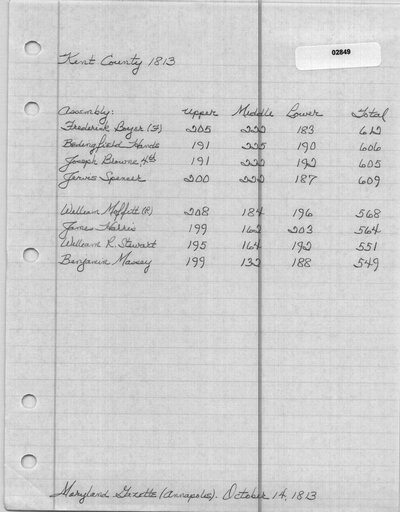 02849
Kent County 1813
Assembly: Upper Middle Lower Total
Frederick Boyer (F) 205 222 183 612
Bedingfield Hands 191 225 190 606
Joseph Browne 4th 191 222 192 605
Jervis Spencer 200 222 187 609
William Moffett (R) 208 184 196 568
James Harris 199 162 203 564
William R. Stewart 195 164 192 551
Benjamin Massey 199 132 188 549
Maryland Gazette (Annapolis). October 14, 1813